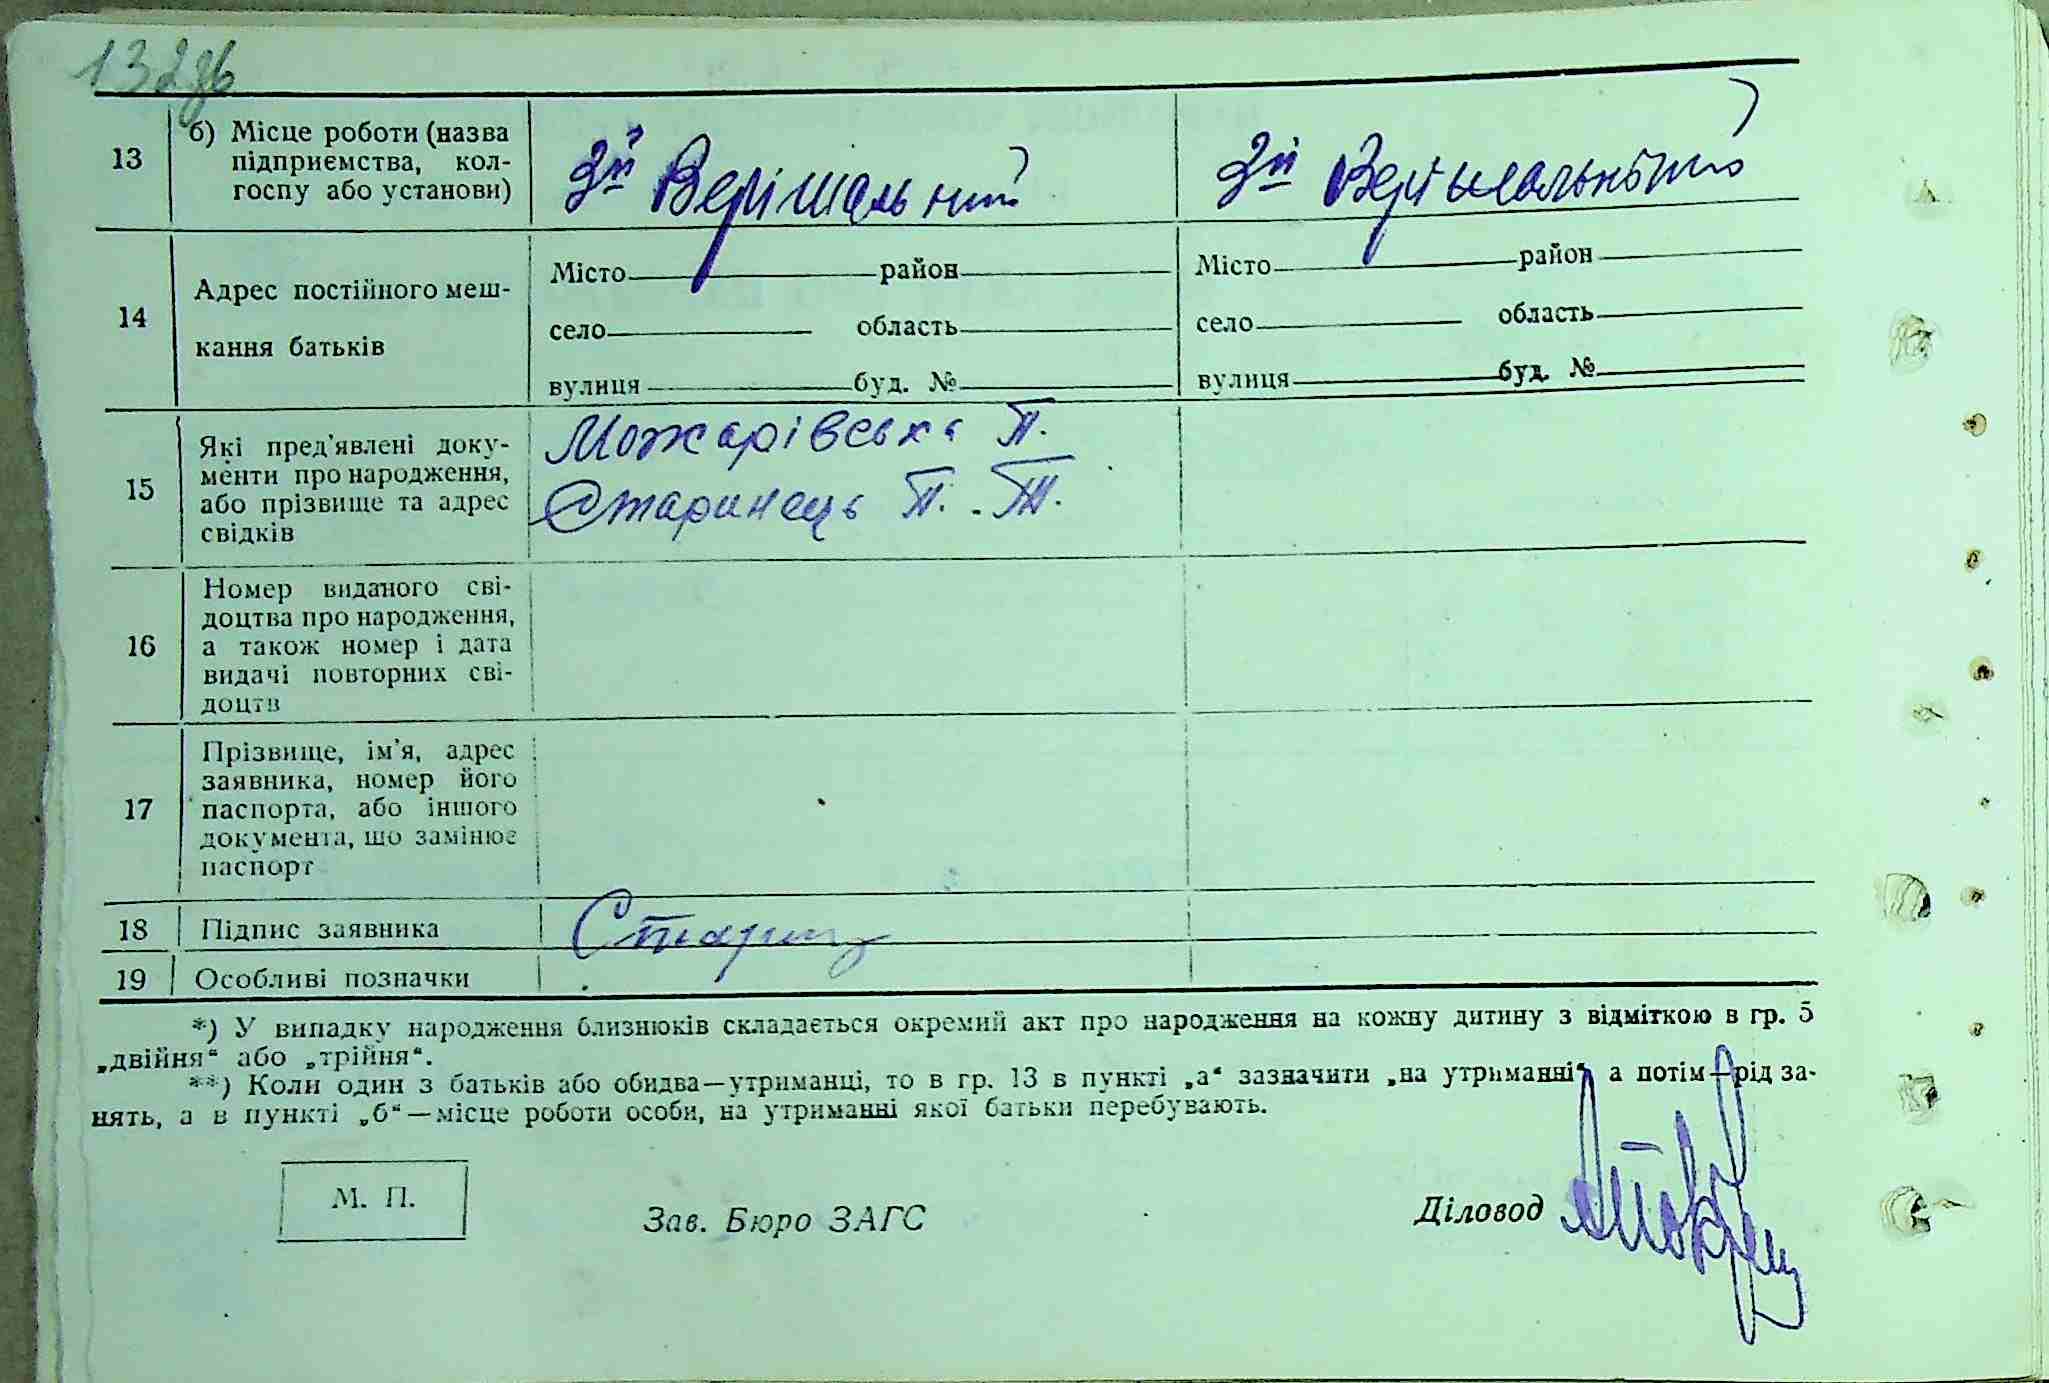 132зв
13
б) Місце роботи (назва
підприємства, кол-
госпу або установи)
3й Верішальний
3й
14
Адрес постійного меш-
кання батьків
Місто район
село область
вулиця буд. №
Місто район
село область
вулиця буд. №
15
Які пред'явлені доку-
менти про народження,
або прізвище та адрес
свідків
Можарівська П.
Старинець П. Т.
16
Номер виданого сві-
доцтва про народження,
а також номер і дата
видачі повторних сві-
доцтв
17
Прізвище, ім'я, адрес
заявника, номер його
паспорта, або іншого
документа, що замінює
паспорт
18 Підпис заявника
19 Особливі позначки
*) У випадку народження близнюків складається окремий акт про народження на кожну дитину з відміткою в гр. 5
„двійня“ або „трійня“.
**) Коли один з батьків або обидва—утриманці, то в гр. 13 в пункті „а“ зазначити „на утриманні“, а потім—рід за-
нять, а в пункті „б“—місце роботи особи, на утриманні якої батьки перебувають.
М. П.
Зав. Бюро ЗАГС
Діловод